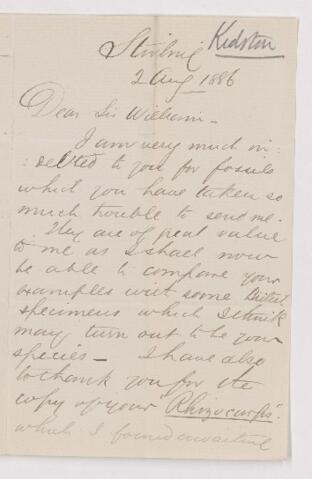 Kidston
Stirling
2 Aug 1886
Dear Sir William -
I am very much in:
:debted to you for fossils
which you have taken so
much trouble to send me.
They are of great value
to me as I shall now
be able to compare your
examples with some British
specimens which I think
may turn out to be your
species - I have also
to thank you for the
copy of your "Rhizocarps"
which I found awaiting